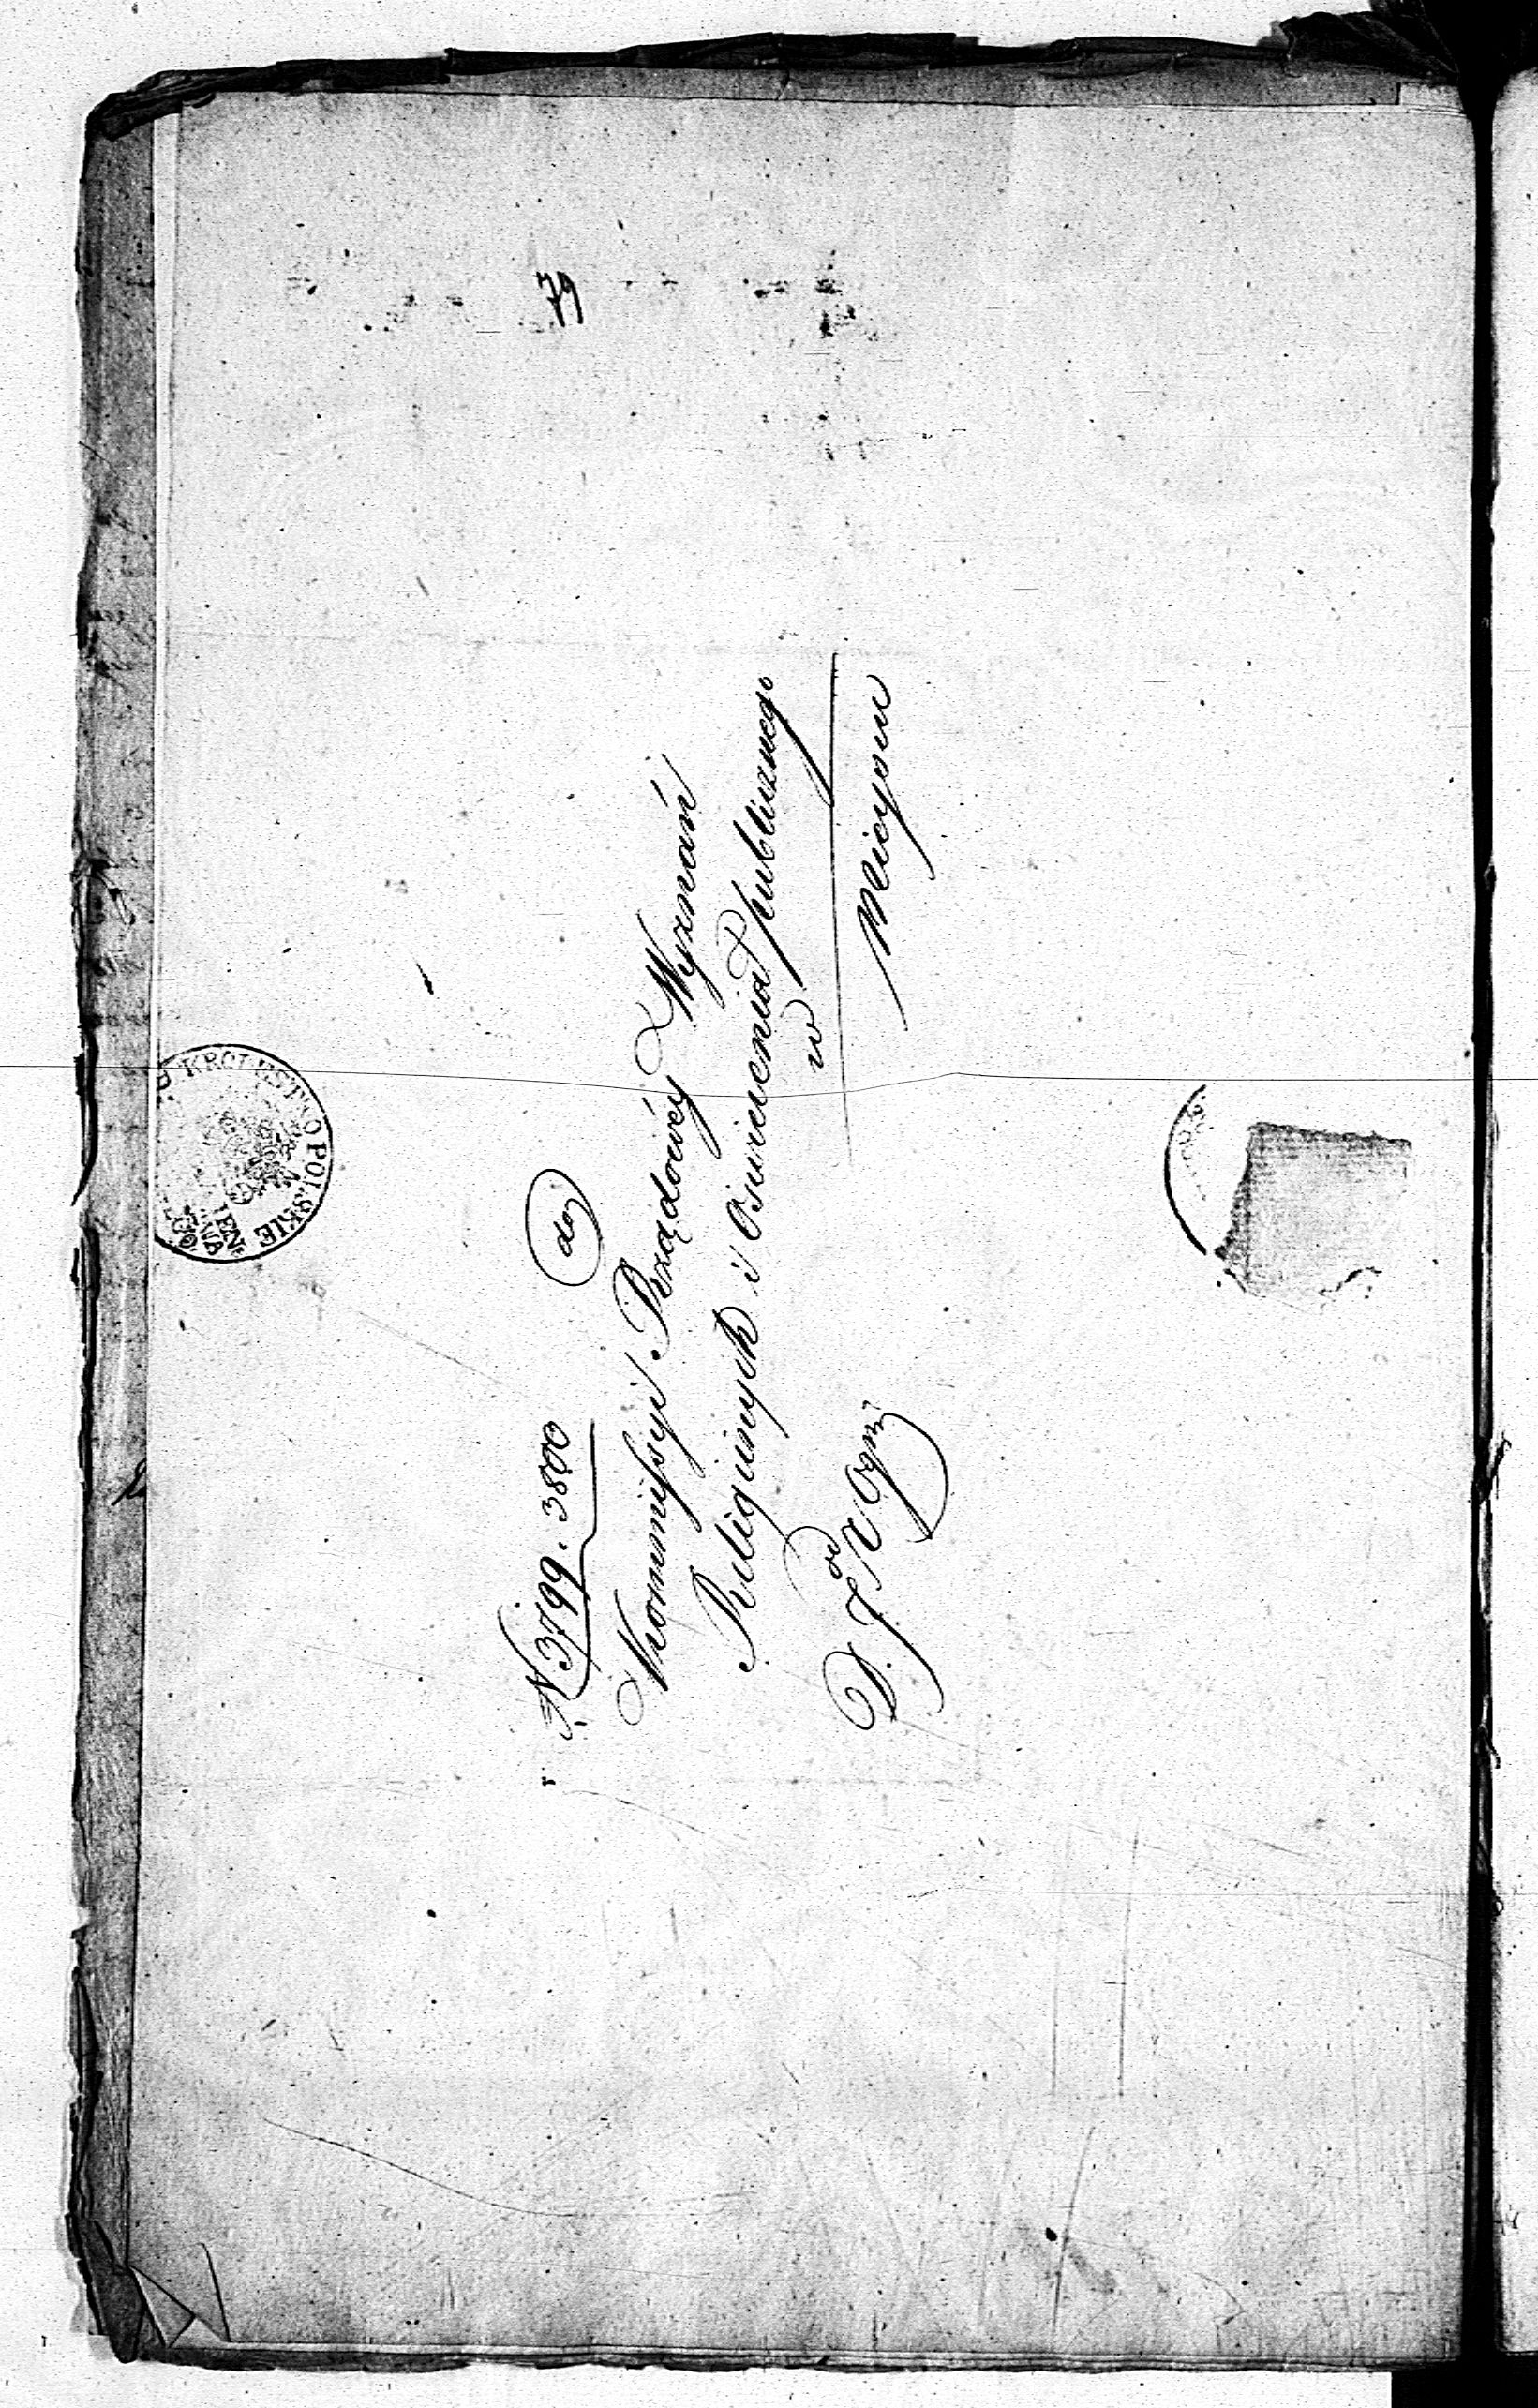 79
N 3799. 3800
do
Kommissyi Rządowéy Wyznań
Religiinych i Oswiecenia publicznego
w
Mieyscu
od
D. J.
KROLESTWO POLSKIE